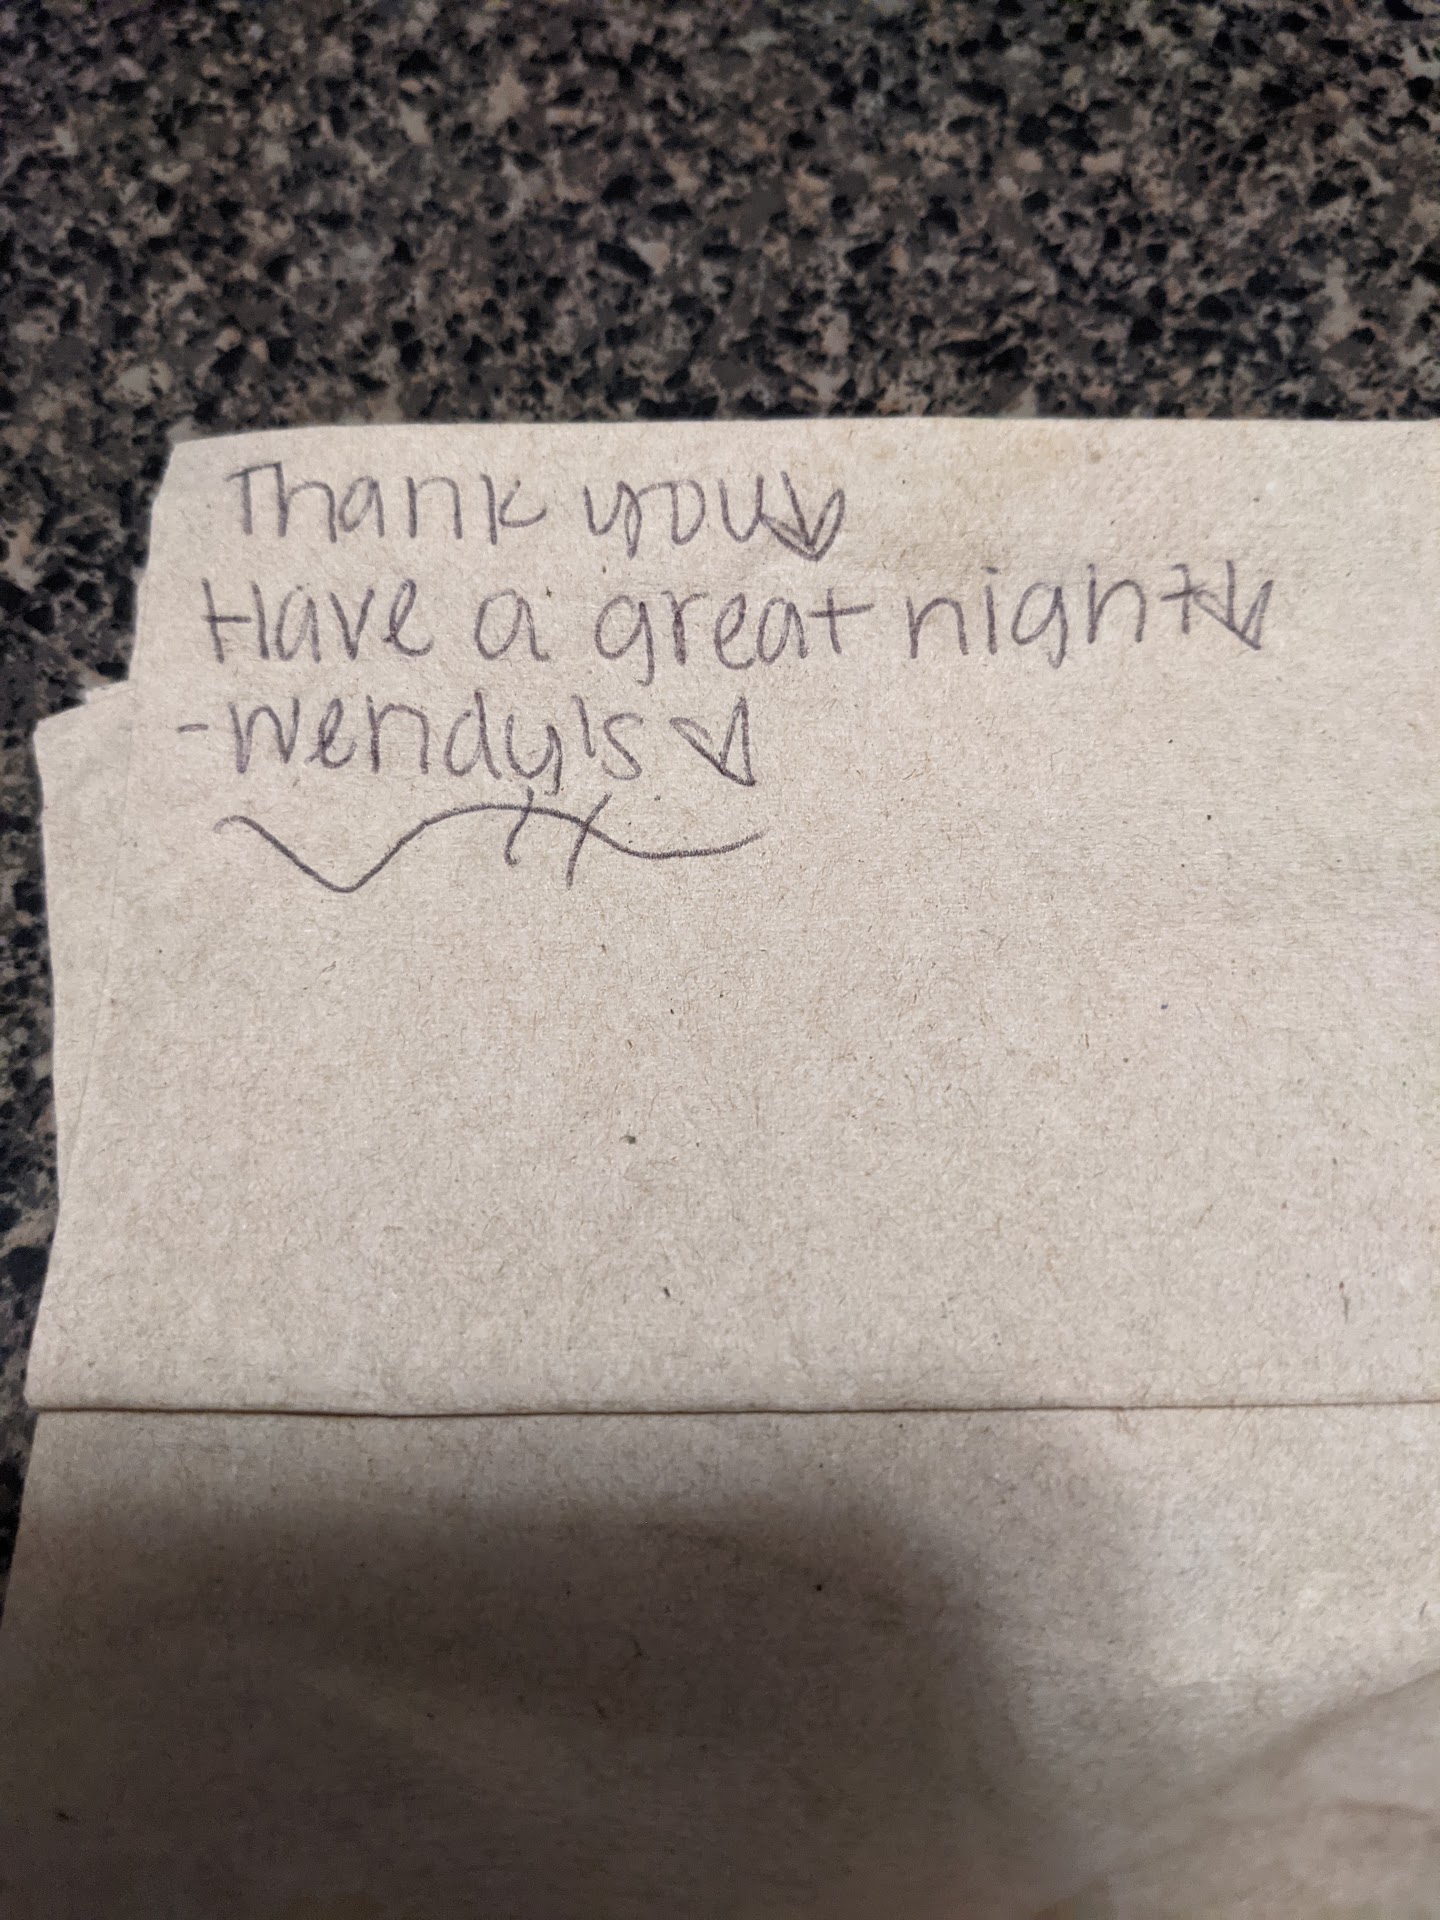 Thank you♡
Have a great night♡
-Wendy's ♡